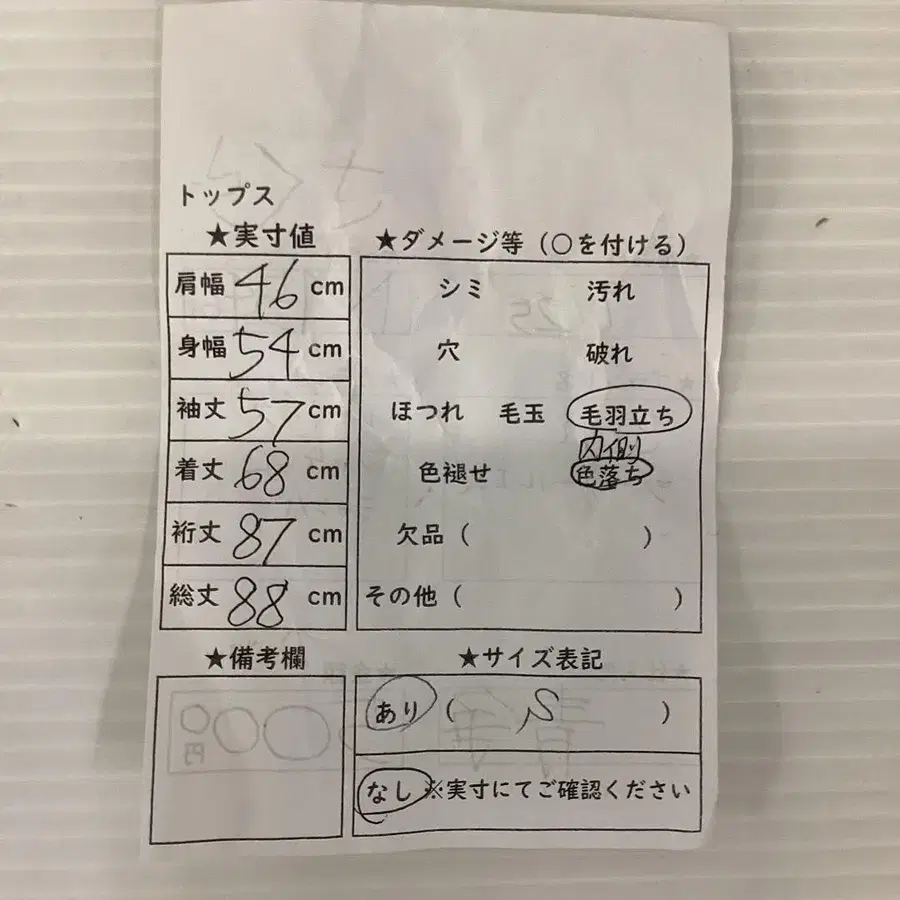 トップス
★実寸値
肩幅 46 cm
身幅 54 cm
袖丈 57 cm
着丈 68 cm
裄丈 87 cm
総丈 88 cm
★備考欄
★ダメージ等（○を付ける）
シミ 汚れ
穴 破れ
ほつれ 毛玉 毛羽立ち
内側
色褪せ 色落ち
欠品（ ）
その他（ ）
★サイズ表記
あり（ S ）
なし ※実寸にてご確認ください